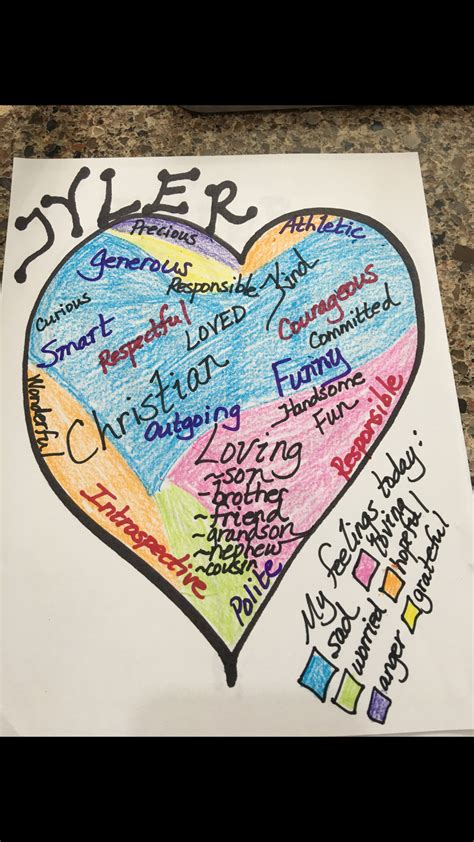 JYLER
Precious
Athletic
generous
Responsible
Kind
Curious
Smart
Respectful
LOVED
Courageous
Committed
Wonderful
Christian
Outgoing
Funny
Handsome
Fun
Responsible
Loving
~son
~brother
~friend
~grandson
~nephew
~cousin
Introspective
Polite
My feelings today:
sad
loving
worried
hopeful
anger
grateful